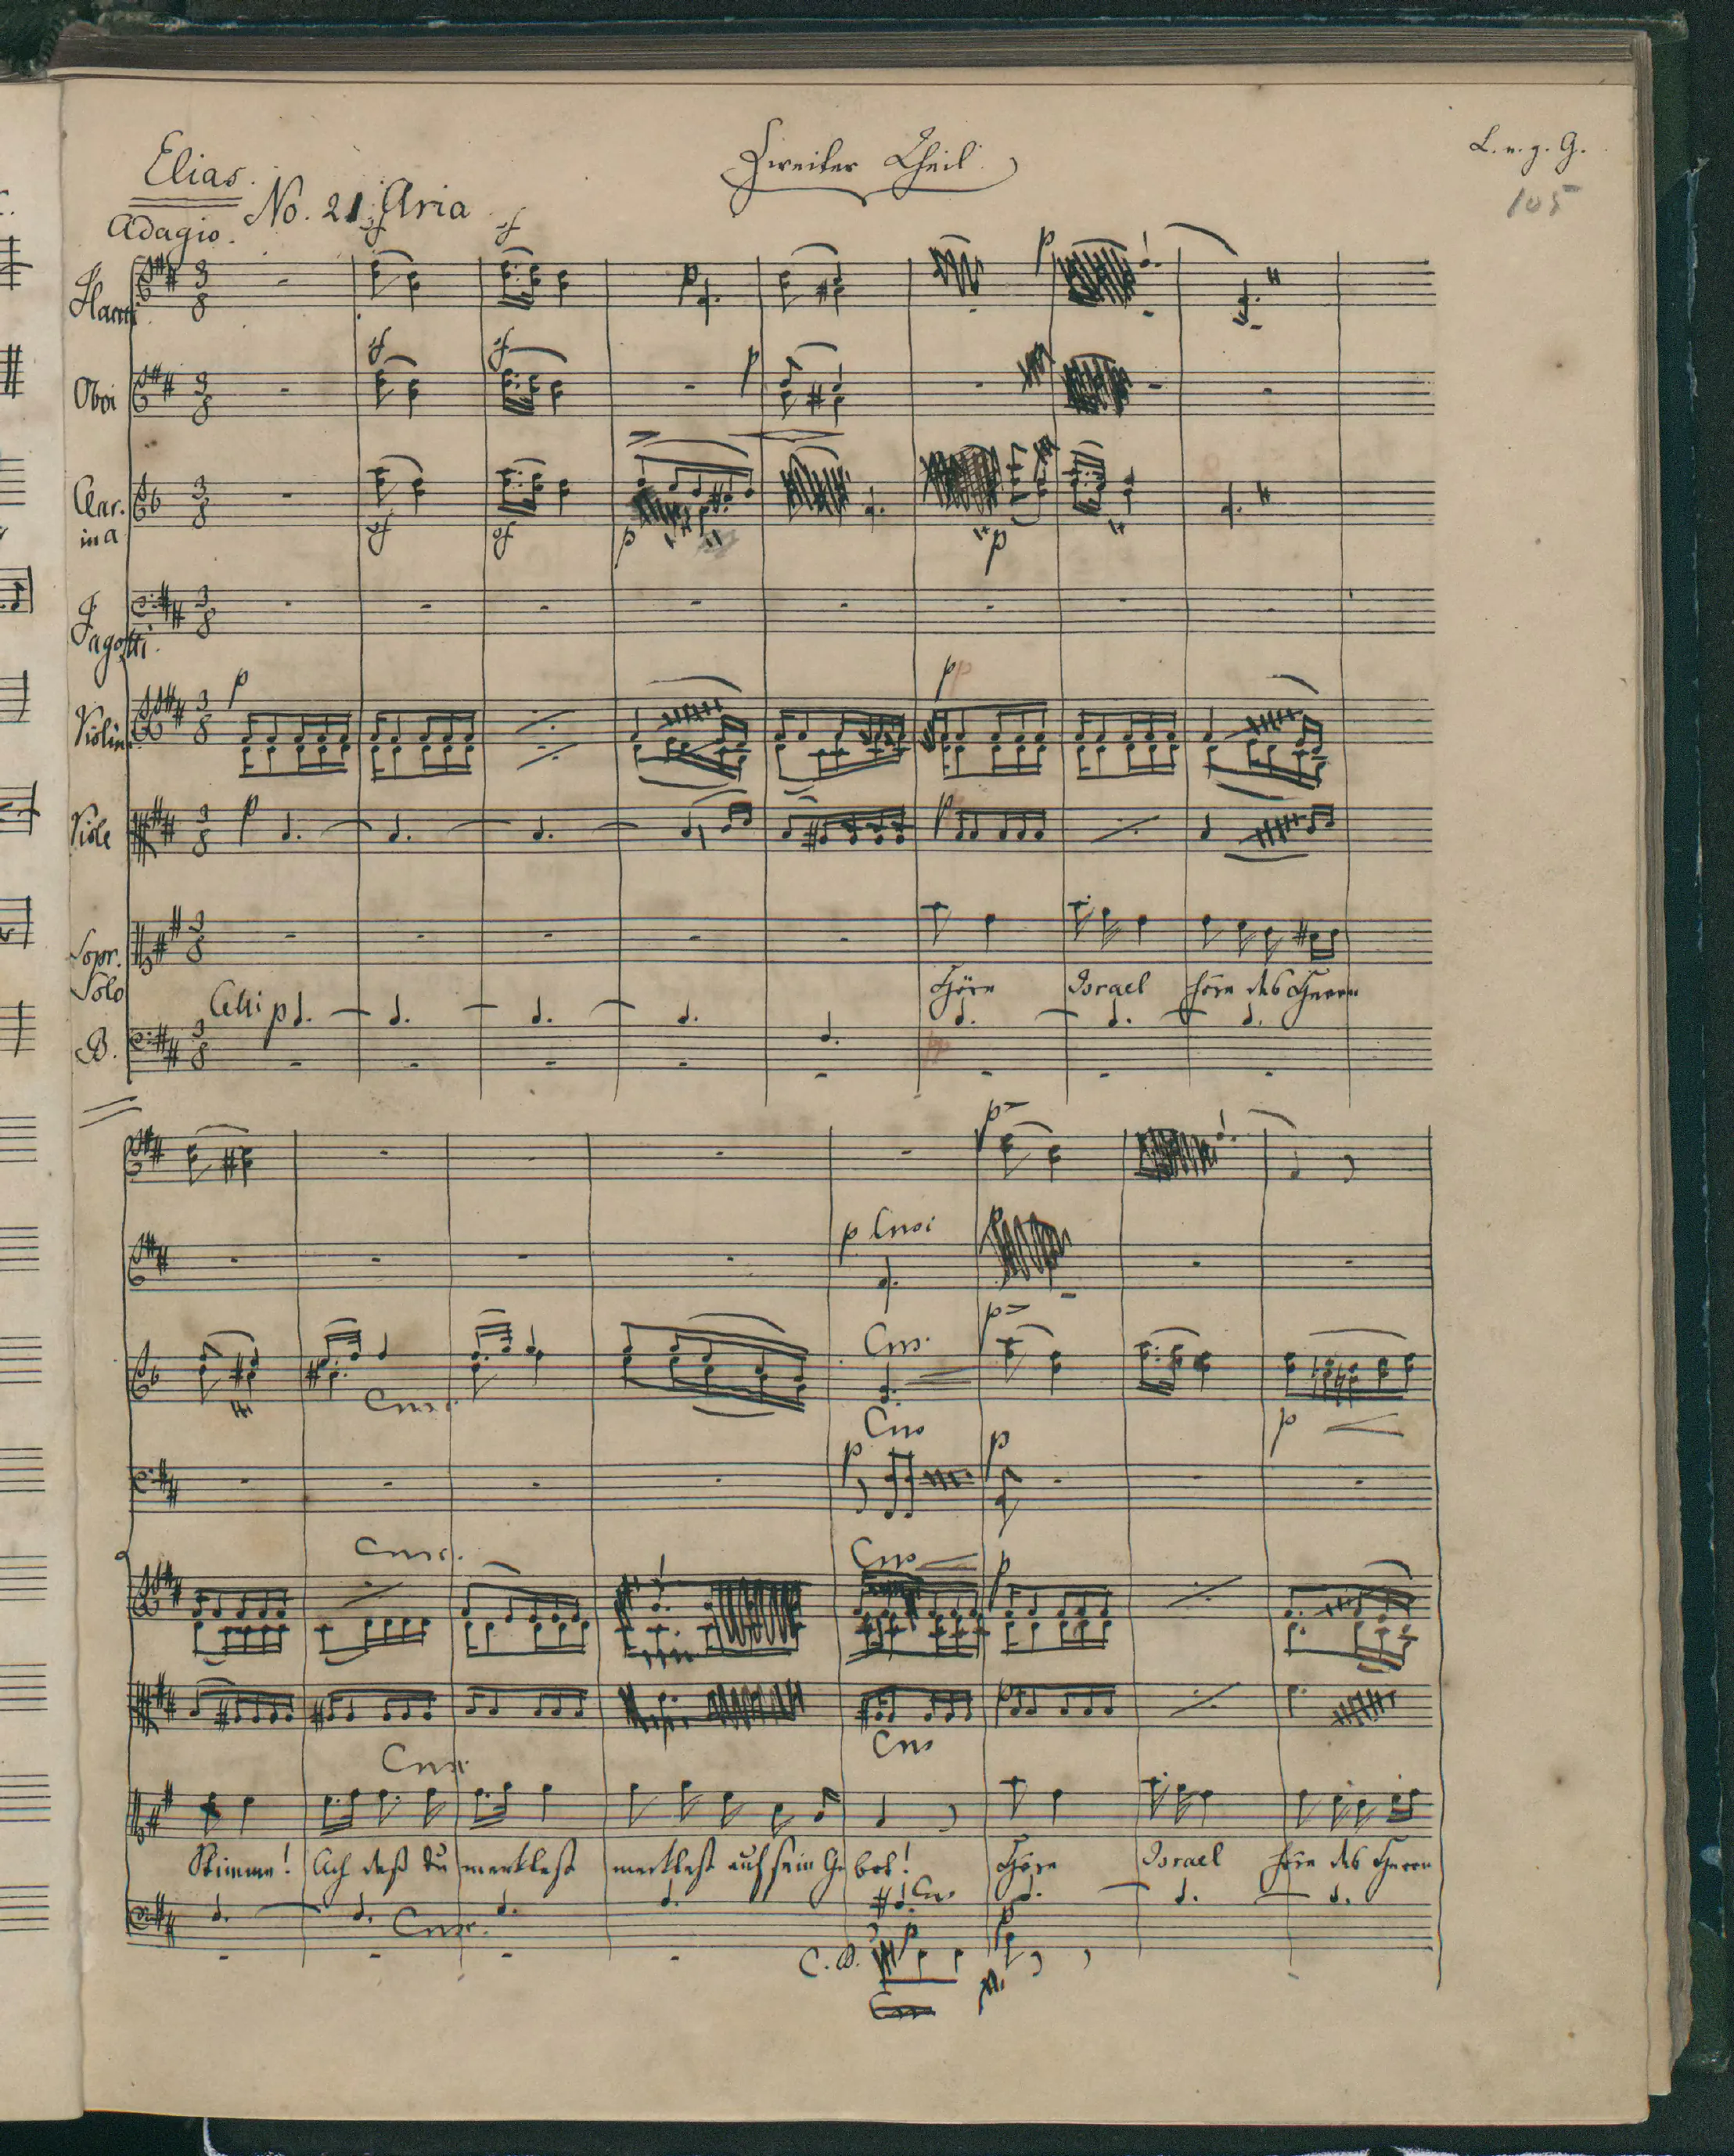 Elias.
Zweiter Theil.
L. e. g. G.
105
No. 21 Aria
Adagio.
Flauti
Oboi
Clar.
in a
Fagotti.
Violin
Viole
Sopr.
Solo
Höre Israel höre des Herrn
Celli p
B.
p Cresc
Cres.
Cresc.
Cres
Cresc.
Cres
Cres
Cresc
Stimme! Ach daß du merktest merktest auf sein Gebot! Höre Israel höre des Herrn
Cres
Cresc.
C. B.
Cres